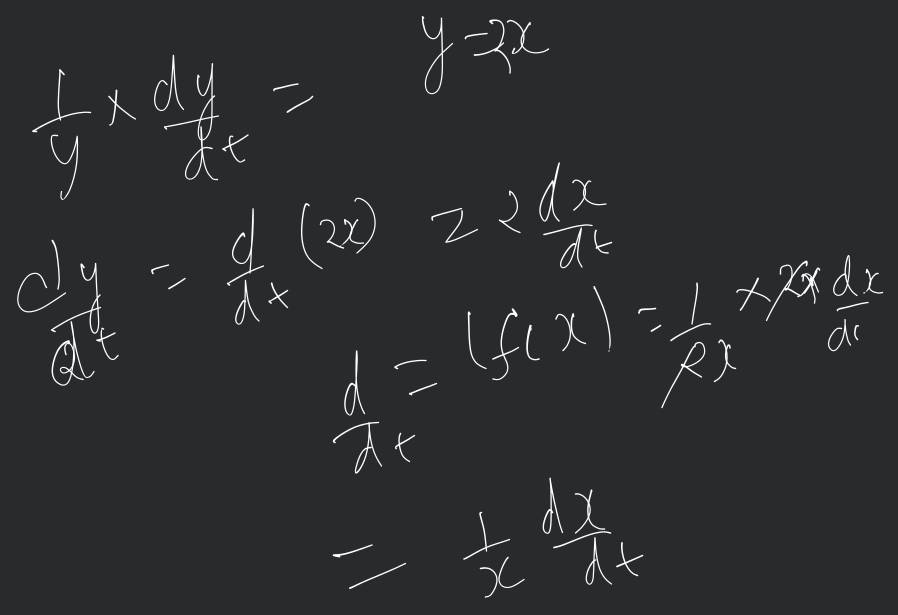 y = 2x
1/y × dy/dt =
dy/dt = d/dt (2x) = 2 dx/dt
d/dt = (f(x)) = 1/2x × 2x dx/dt
= 1/x dx/dt